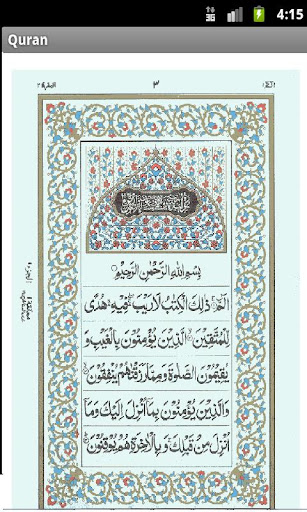 4:15
Quran
البقرة ٢
٣
الٓمّٓ ١
بِسْمِ اللّٰهِ الرَّحْمٰنِ الرَّحِيْمِ
الٓمّٓ ۚ ذٰلِكَ الْكِتٰبُ لَا رَيْبَ ۛ فِيْهِ ۛ هُدًى
لِّلْمُتَّقِيْنَ ۙ الَّذِيْنَ يُؤْمِنُوْنَ بِالْغَيْبِ وَ
يُقِيْمُوْنَ الصَّلٰوةَ وَمِمَّا رَزَقْنٰهُمْ يُنْفِقُوْنَ ۙ
وَالَّذِيْنَ يُؤْمِنُوْنَ بِمَآ اُنْزِلَ اِلَيْكَ وَمَآ
اُنْزِلَ مِنْ قَبْلِكَ ۚ وَبِالْاٰخِرَةِ هُمْ يُوْقِنُوْنَ ؕ